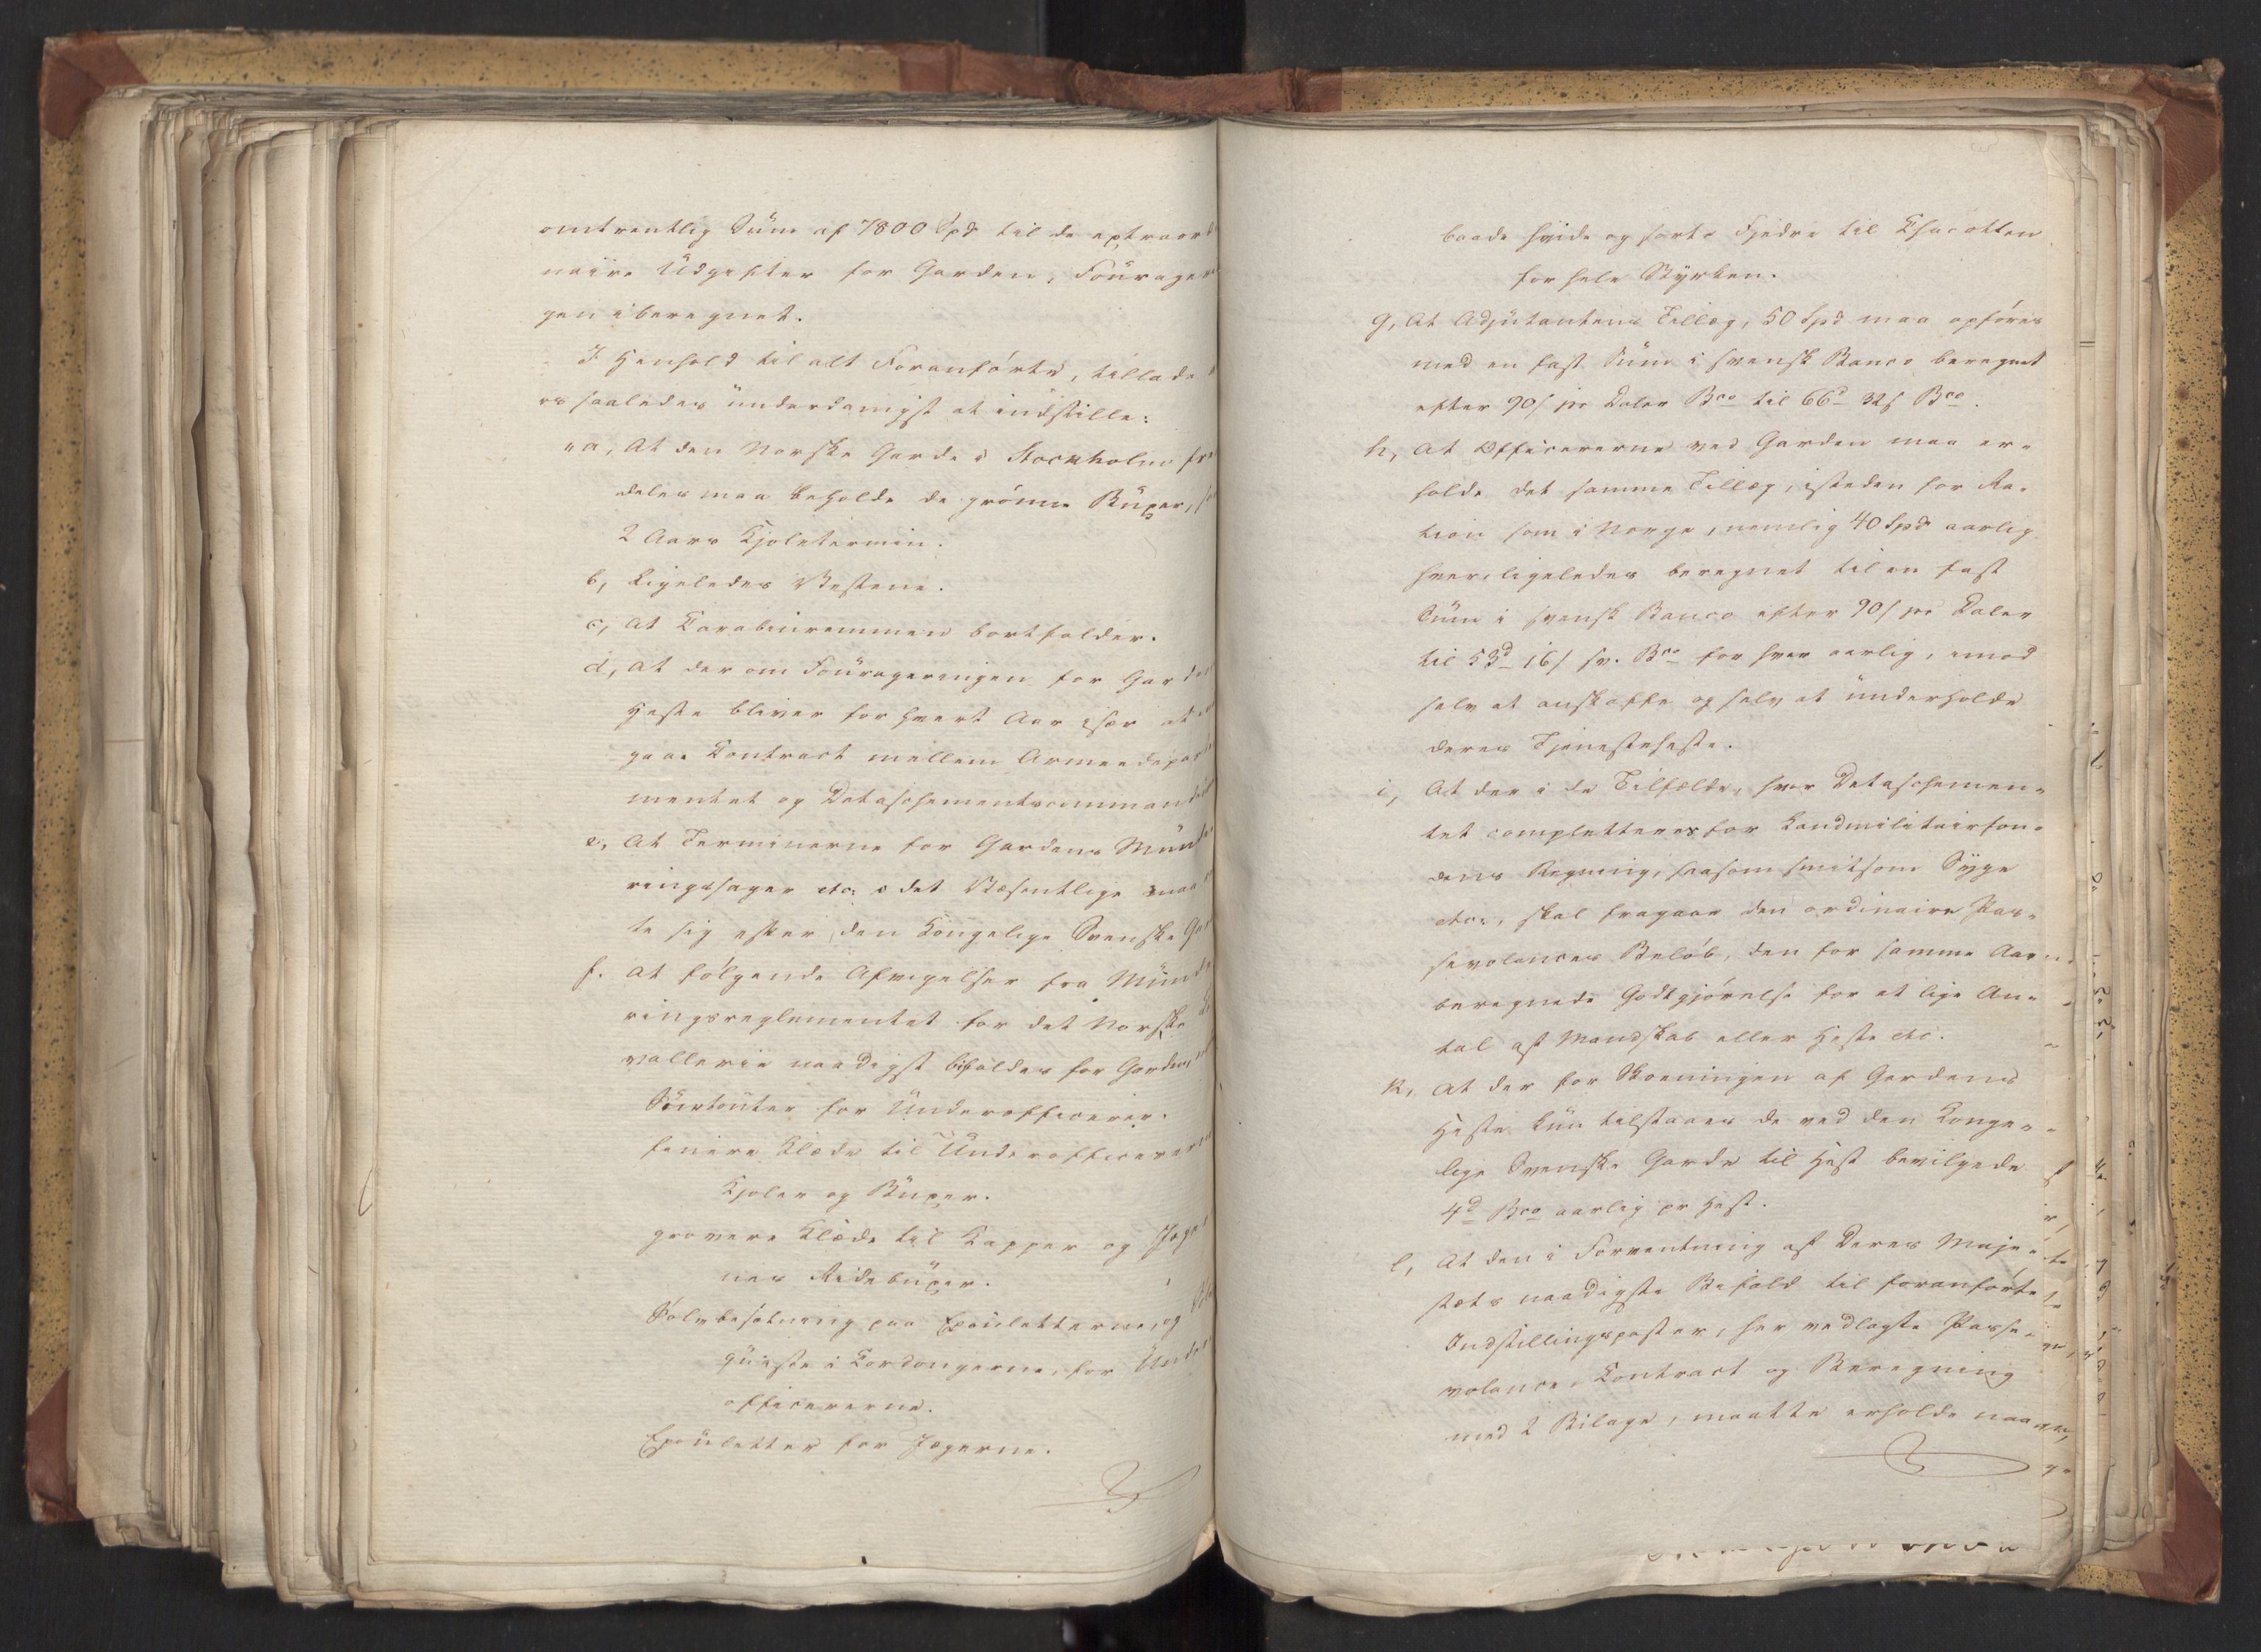 omtrentlig Süm af 7800 Spd til de extraord
naire Üdgifter for Garden, Fourage
gen iberegnet.
I Henhold til alt Foranførte, tillade
os saaledes ünderdanigst at indstille:
"a, At den Norske Garde i Stockholm frem
deles maa beholde de grönne Büxer,
2 Aars Kjoletermin.
b, Ligeledes Vestene.
c, At Carabinremmen bortfalder.
d, At der om Fourageringen for Garden
Heste bliver for hvert Aar især at
gaae Contract mellem Armeedepar
mentet og Detaschementscommand
e, At Terminerne for Gardens Münde
ringssager etc: i det Væsentlige maa
te sig efter den Kongelige Svenske Gar
f. At følgende Afvigelser fra Münde
ringsreglementet for det Norske
vallerie naadigst bifaldes for Garden,
Sürtouter for Underofficerer.
finere Klæde til Underofficerer
Kjoler og Büxer.
grovere Klæde til Kapper og Jæger
nes Ridebüxer.
Sølvbesætning paa Epauletterne, og
qüaste i Cordongerne, for Ünder
officererne.
Epauletter for Jægerne.
baade hvide og sorte Fjedre til Chacotten
for hele Styrken.
g, At Adjütantens Tillæg, 50 Spd maa opføres
med en fast Süm i svensk Banco beregnet
efter 90s pr Daler Bco til 66d 32s Bco.
h, At Officererne ved Garden maa er-
holde det samme Tillæg, isteden for Ra-
tion som i Norge, nemlig 40 Spd aarlig
hver, ligeledes beregnet til en fast
Süm i svensk Banco efter 90s pr Daler
til 53d 16s sv. Bco for hver aarlig, imod
selv at anskaffe og selv at ünderholde
deres Tjenesteheste.
i, At der i de Tilfælde, hvor Detaschemen-
tet completteres for Landmilitairfon-
dens Regning, saasom smitsom Syge
etc:, skal fragaae den ordinaire Pas-
sevolances Beløb, den for samme Aar
beregnede Godtgjørelse for et lige An-
tal af Mandskab eller Heste etc.
k, At der for Skoeningen af Gardens
Heste kün tilstaaes de ved den Konge-
lige Svenske Garde til Hest bevilgede
4d Bco aarlig pr Hest.
l, At den i Forventning af Deres Maje-
stæts naadigste Bifald til foranførte
Indstillingsposter, her vedlagte Passe-
volance, Contract og Beregning
med 2 Bilage, maatte erholde naa